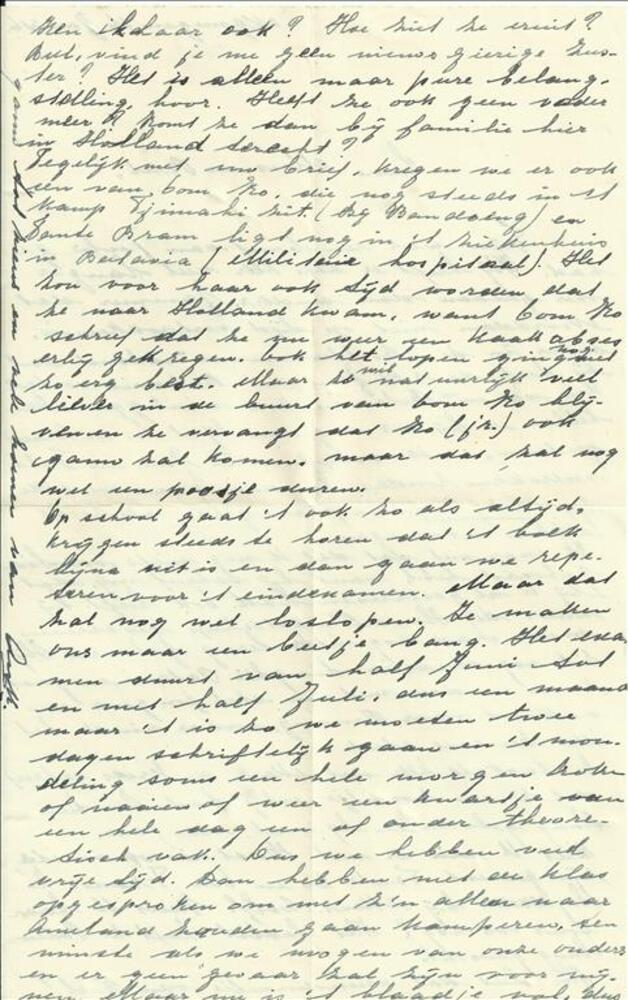 Ken ik haar ook? Hoe ziet ze eruit?
But, vind je me geen nieuwsgierige zus-
ter? Het is alleen maar pure belang-
stelling, hoor. Heeft ze ook geen vader
meer? Komt ze dan bij familie hier
in Holland terecht?
Tegelijk met uw brief, kregen we er ook
een van oom Ko, die nog steeds in 't
kamp Tjimahi zit. (bij Bandoeng) en
Tante Bram ligt nog in 't ziekenhuis
in Batavia (Militair hospitaal). Het
zou voor haar ook tijd worden dat
ze naar Holland kwam, want oom Ko
schreef dat ze nu weer een kaakabses
erbij gekregen. Ook het lopen ging nog niet
zo erg best. Maar ze wil natuurlijk veel
liever in de buurt van oom Ko blij-
ven en ze verwacht dat Ko (jr.) ook
gauw zal komen. maar dat zal nog
wel een poosje duren.
Op school gaat 't ook zo als altijd,
krijgen steeds te horen dat 't boek
bijna uit is en dan gaan we repe-
teren voor 't eindexamen. Maar dat
zal nog wel loslopen. Ze maken
ons maar een beetje bang. Het exa-
men duurt van half Juni tot
en met half Juli, dus een maand
maar 't is zo we moeten twee
dagen schriftelijk gaan en 't mon-
deling soms een hele morgen koken
of naaien of weer een kwartje van
een hele dag een of ander theore-
tisch vak. Dus we hebben veel
vrije tijd. Dan hebben met de klas
afgesproken om met z'n allen naar
Ameland zouden gaan kamperen, ten-
minste als we mogen van onze ouders
en er geen gevaar zal zijn voor mij-
nen. Maar nu is 't blaadje vol, dus
gauw tot ziens en vele zoenen van